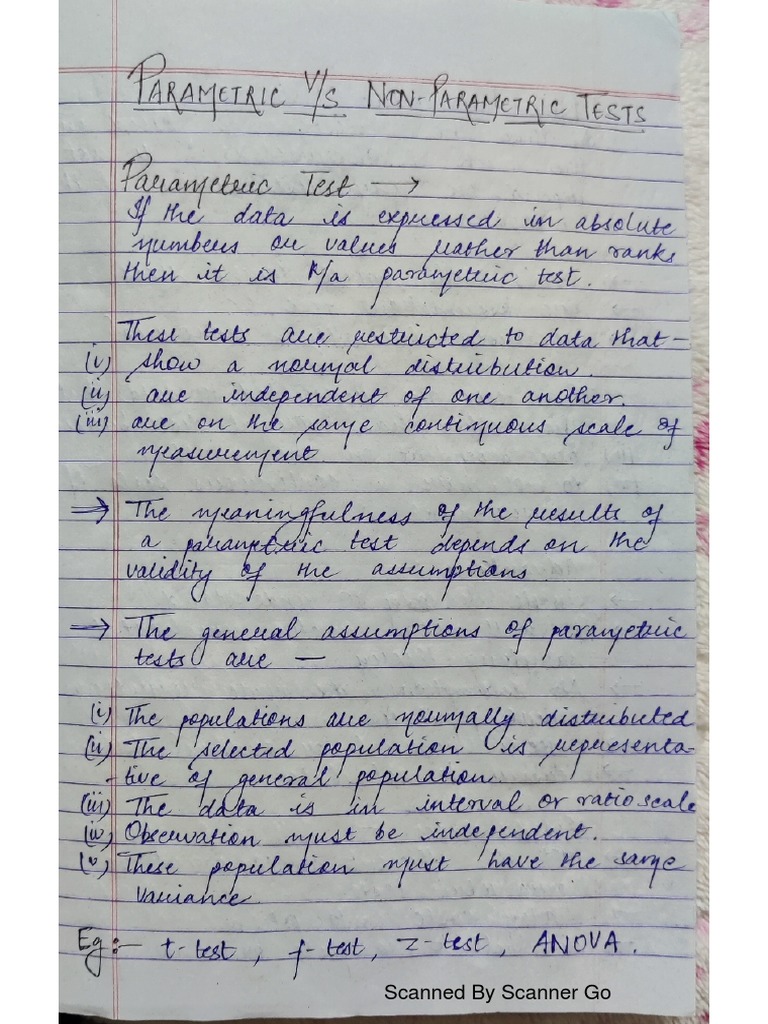 PARAMETRIC V/S NON-PARAMETRIC TESTS
Parametric Test →
If the data is expressed in absolute
numbers or values rather than ranks
then it is k/a parametric test.
These tests are restricted to data that -
(i) show a normal distribution.
(ii) are independent of one another.
(iii) are on the same continuous scale of
measurement
⇒ The meaningfulness of the results of
a parametric test depends on the
validity of the assumptions
⇒ The general assumptions of parametric
tests are —
(i) The populations are normally distributed
(ii) The selected population is representa-
-tive of general population.
(iii) The data is in interval or ratio scale
(iv) Observation must be independent.
(v) These population must have the same
variance.
Eg:- t-test, f-test, z-test, ANOVA.
Scanned By Scanner Go